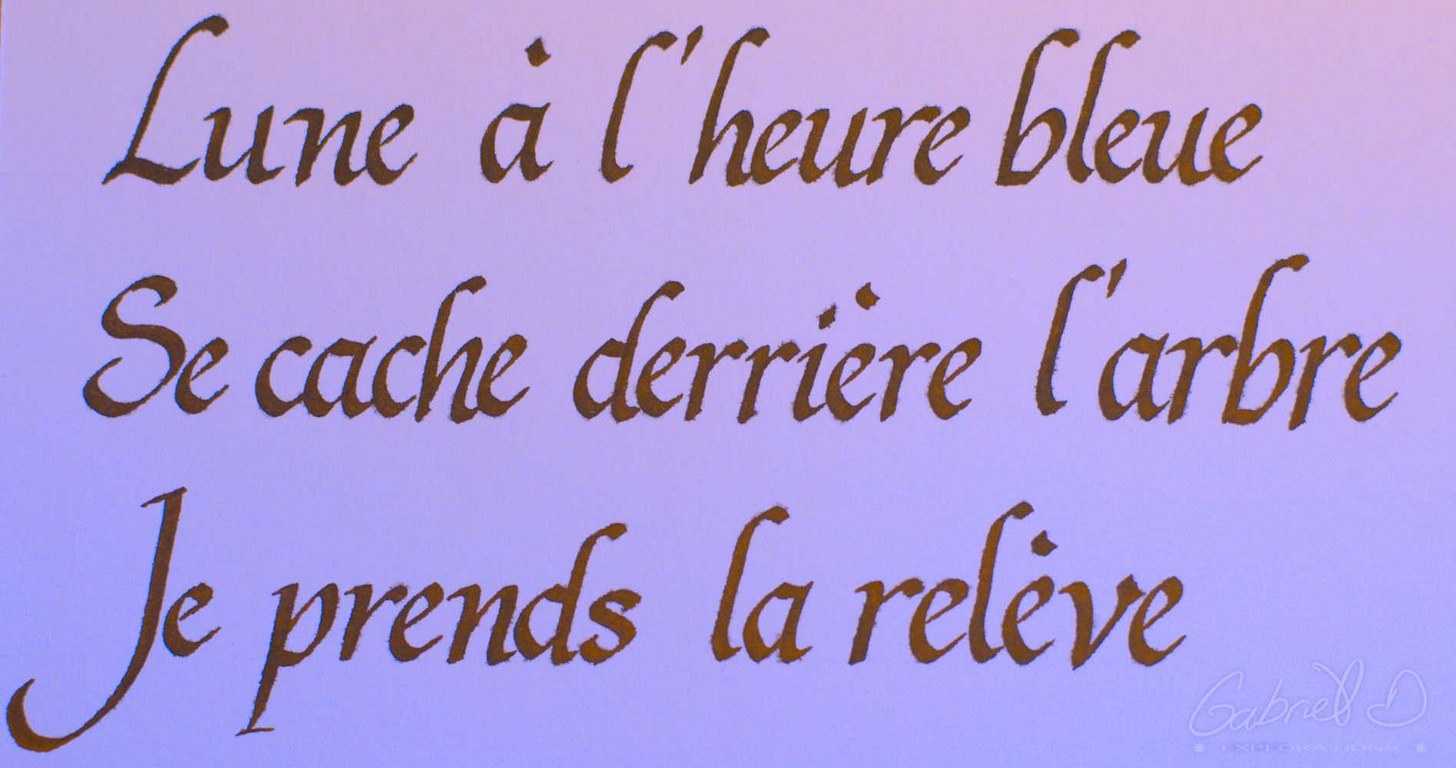 Lune à l'heure bleue
Se cache derrière l'arbre
Je prends la relève
Gabriel D
EXPLORATIONS